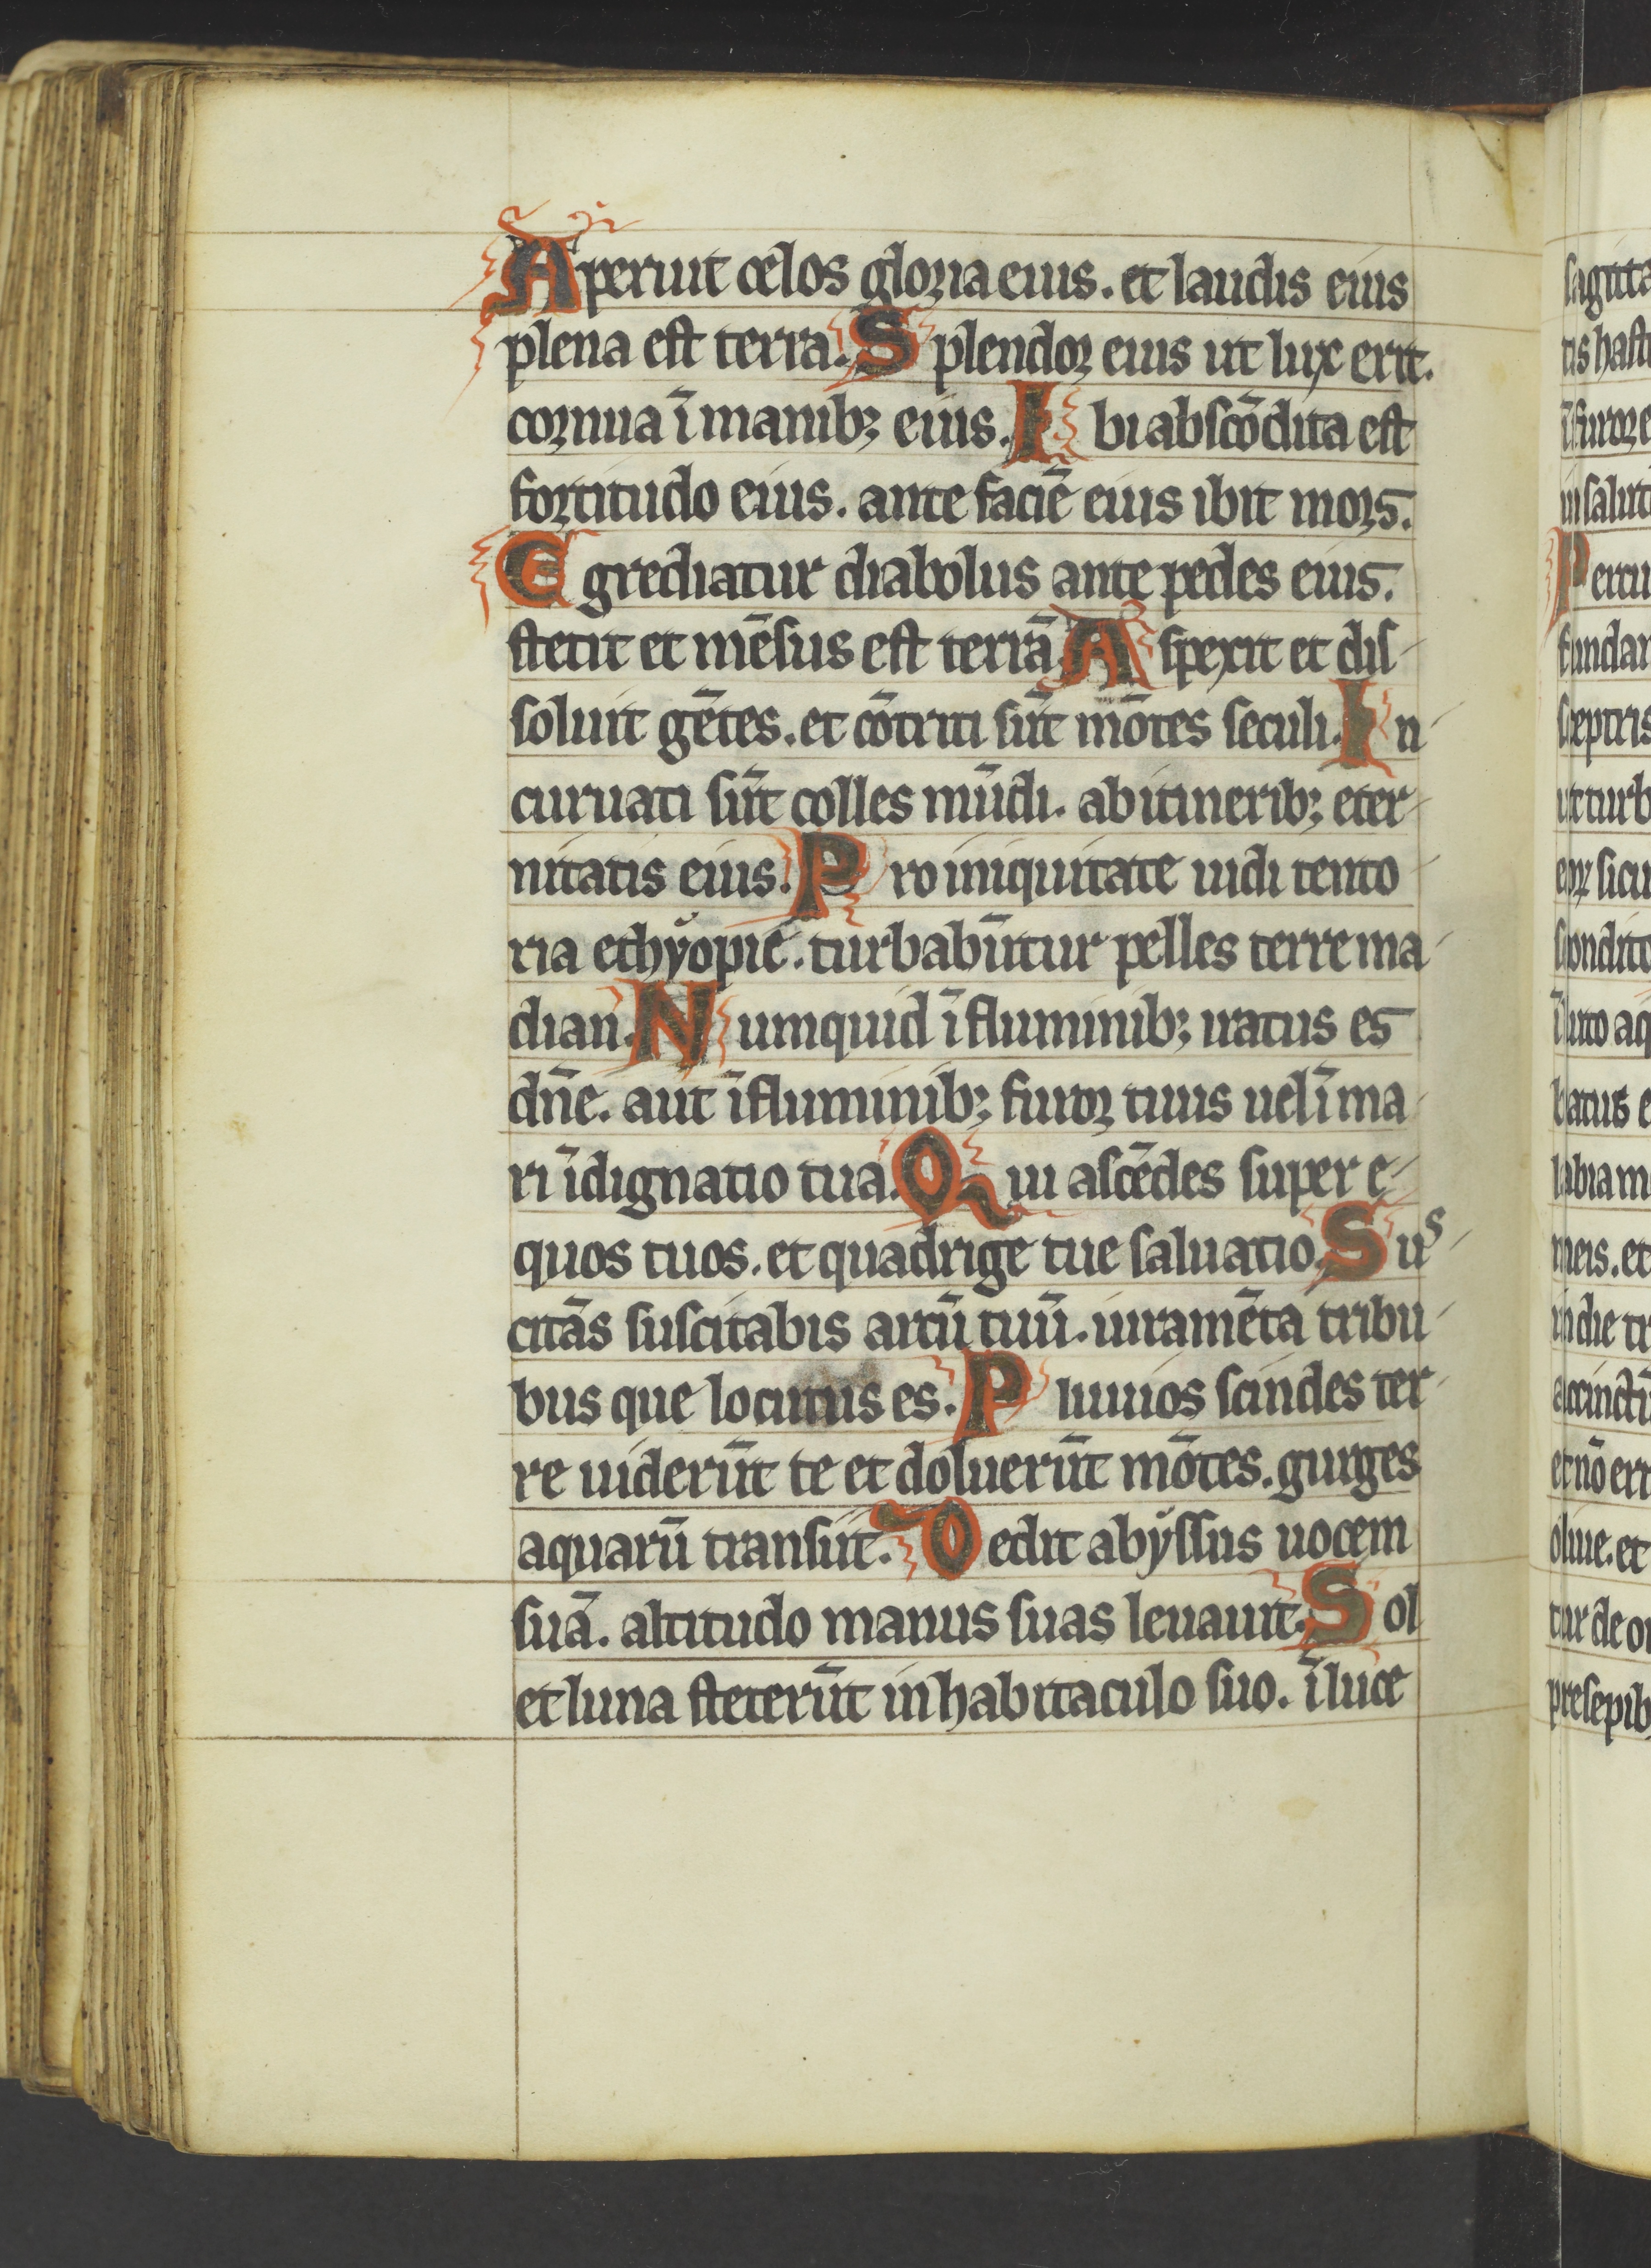 Aperuit celos gloria eius. et laudis eius
plena est terra. Splendor eius ut lux erit.
cornua ī manibꝫ eius. Ibi abscōdita est
fortitudo eius. ante faciē eius ibit mors.
Egrediatur diabolus ante pedes eius.
stetit et mēsus est terrā. Aspexit et dis
soluit gētes. et cōtriti sūt mōtes seculi. In
curuati sūt colles mūdi. ab itineribꝫ eter
nitatis eius. Pro iniquitate uidi tento
ria ethyopie. turbabūtur pelles terre ma
dian. Numquid ī fluminibꝫ iratus es
dn̄e. aut ī fluminibꝫ furor tuus uel ī ma
ri īdignatio tua. Qui ascēdes super e
quos tuos. et quadrige tue saluatio. Sus
citās suscitabis arcū tuū. iuramēta tribu
bus que locutus es. Pluuios scindes ter
re uiderūt te et doluerūt mōtes. gurges
aquarū transiit. Dedit abyssus uocem
suā. altitudo manus suas leuauit. Sol
et luna steterūt in habitaculo suo. ī luce